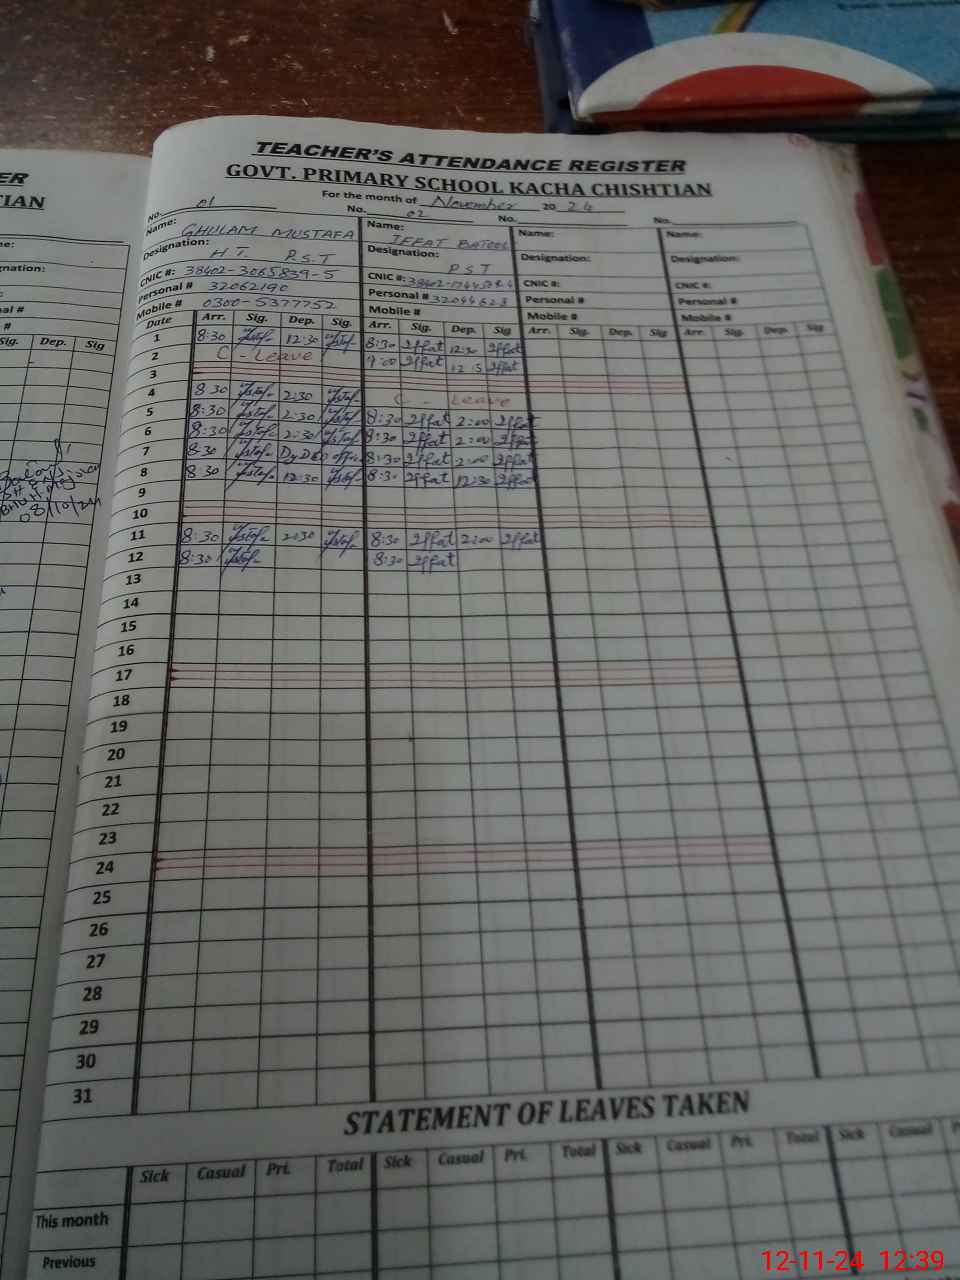 TEACHER'S ATTENDANCE REGISTER
GOVT. PRIMARY SCHOOL KACHA CHISHTIAN
For the month of November 2024
No. 01 No. 02 No. No.
Name: GHULAM MUSTAFA Name: IFFAT BATOOL Name: Name:
Designation: H T. P.S.T Designation: P S T Designation: Designation:
CNIC #: 38402-3065839-5 CNIC #: CNIC #: CNIC #:
Personal # 32062190 Personal # 32044623 Personal # Personal #
Mobile # 0300-5377752 Mobile # Mobile # Mobile #
Date Arr. Sig. Dep. Sig. Arr. Sig. Dep. Sig Arr. Sig. Dep. Sig Arr. Sig. Dep. Sig
1 8:30 12:30 8:30 Iffat 12:30 Iffat
2 C - Leave 9:00 Iffat Iffat
3
4 8:30 2:30 C - Leave
5 8:30 2:30 8:30 Iffat 2:00 Iffat
6 8:30 2:30 8:30 Iffat 2:00 Iffat
7 8:30 8:30 Iffat 2:00 Iffat
8 8:30 12:30 8:30 Iffat 12:30 Iffat
9
10
11 8:30 2:30 8:30 Iffat 2:00 Iffat
12 8:30 8:30 Iffat
13
14
15
16
17
18
19
20
21
22
23
24
25
26
27
28
29
30
31
STATEMENT OF LEAVES TAKEN
Sick Casual Pri. Total Sick Casual Pri. Total Sick Casual Pri. Total Sick Casual
This month
Previous
ER
IAN
me:
gnation:
#
Sig. Dep. Sig
08/10/24
12-11-24 12:39